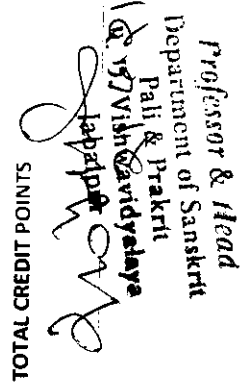 TOTAL CREDIT POINTS
Professor & Head
Department of Sanskrit
Pali & Prakrit
Vishwavidyalaya
Jabalpur